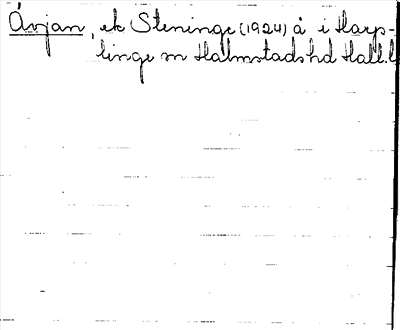 Åvjan, ek Steninge (1924) å i Harp-
linge sn Halmstads hd Hall.l